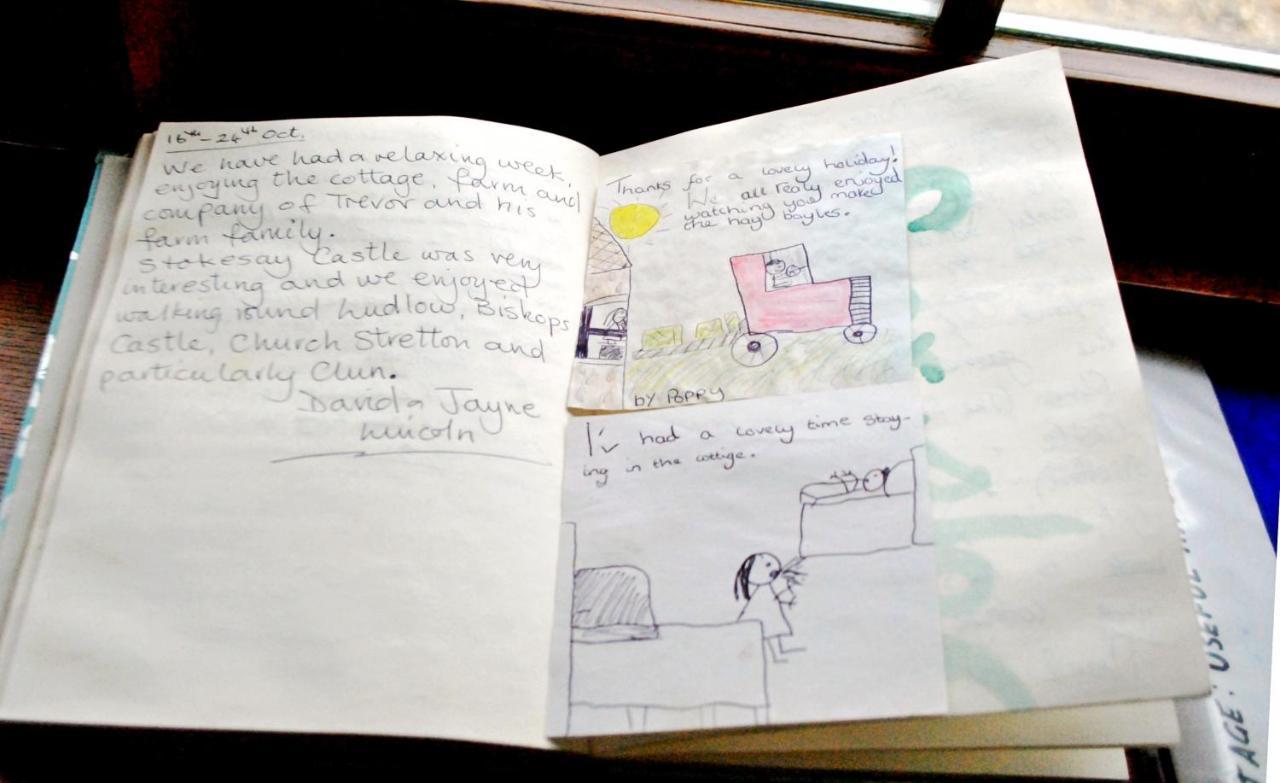 16th - 24th Oct.
We have had a relaxing week,
enjoying the cottage, farm and
company of Trevor and his
farm family.
Stokesay Castle was very
interesting and we enjoyed
walking round Ludlow, Bishops
Castle, Church Stretton and
particularly Clun.
David & Jayne
Lincoln
Thanks for a lovely holiday!
We all realy enjoyed
watching you make
the hay bayles.
by Poppy
I'v had a lovely time stay-
ing in the cottige.
TAGE: USEFUL